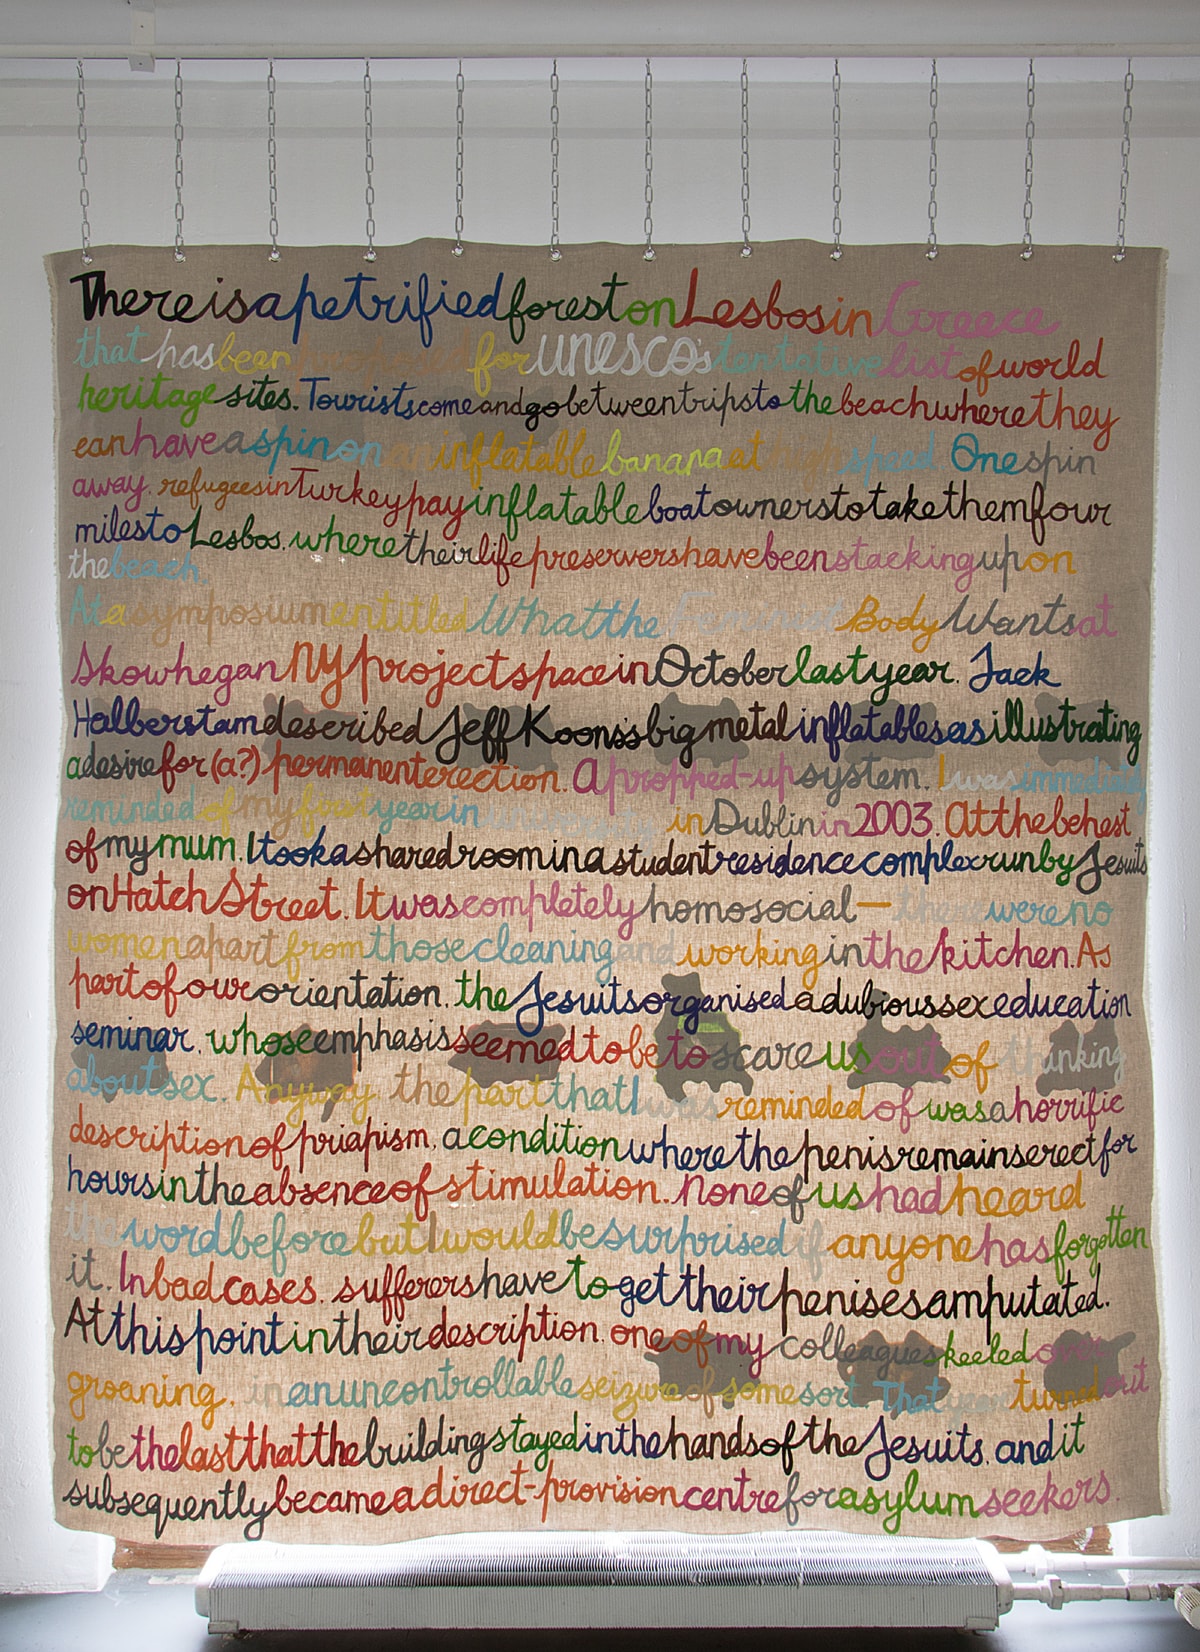 There is a petrified forest on Lesbos in Greece
that has been proposed for UNESCO's tentative list of world
heritage sites. Tourists come and go between trips to the beach where they
can have a spin on an inflatable banana at high speed. One spin
away, refugees in Turkey pay inflatable boat owners to take them four
miles to Lesbos, where their life preservers have been stacking up on
the beach.
At a symposium entitled What the Feminist Body Wants at
Skowhegan NY project space in October last year, Jack
Halberstam described Jeff Koons's big metal inflatables as illustrating
a desire for (a?) permanent erection. A propped-up system. I was immediately
reminded of my first year in university in Dublin in 2003. At the behest
of my mum, I took a shared room in a student residence complex run by Jesuits
on Hatch Street. It was completely homosocial — there were no
women apart from those cleaning and working in the kitchen. As
part of our orientation, the Jesuits organised a dubious sex education
seminar, whose emphasis seemed to be to scare us out of thinking
about sex. Anyway, the part that I was reminded of was a horrific
description of priapism, a condition where the penis remains erect for
hours in the absence of stimulation. None of us had heard
the word before but I would be surprised if anyone has forgotten
it. In bad cases, sufferers have to get their penises amputated.
At this point in their description, one of my colleagues keeled over
groaning, in an uncontrollable seizure of some sort. That year turned out
to be the last that the building stayed in the hands of the Jesuits, and it
subsequently became a direct-provision centre for asylum seekers.